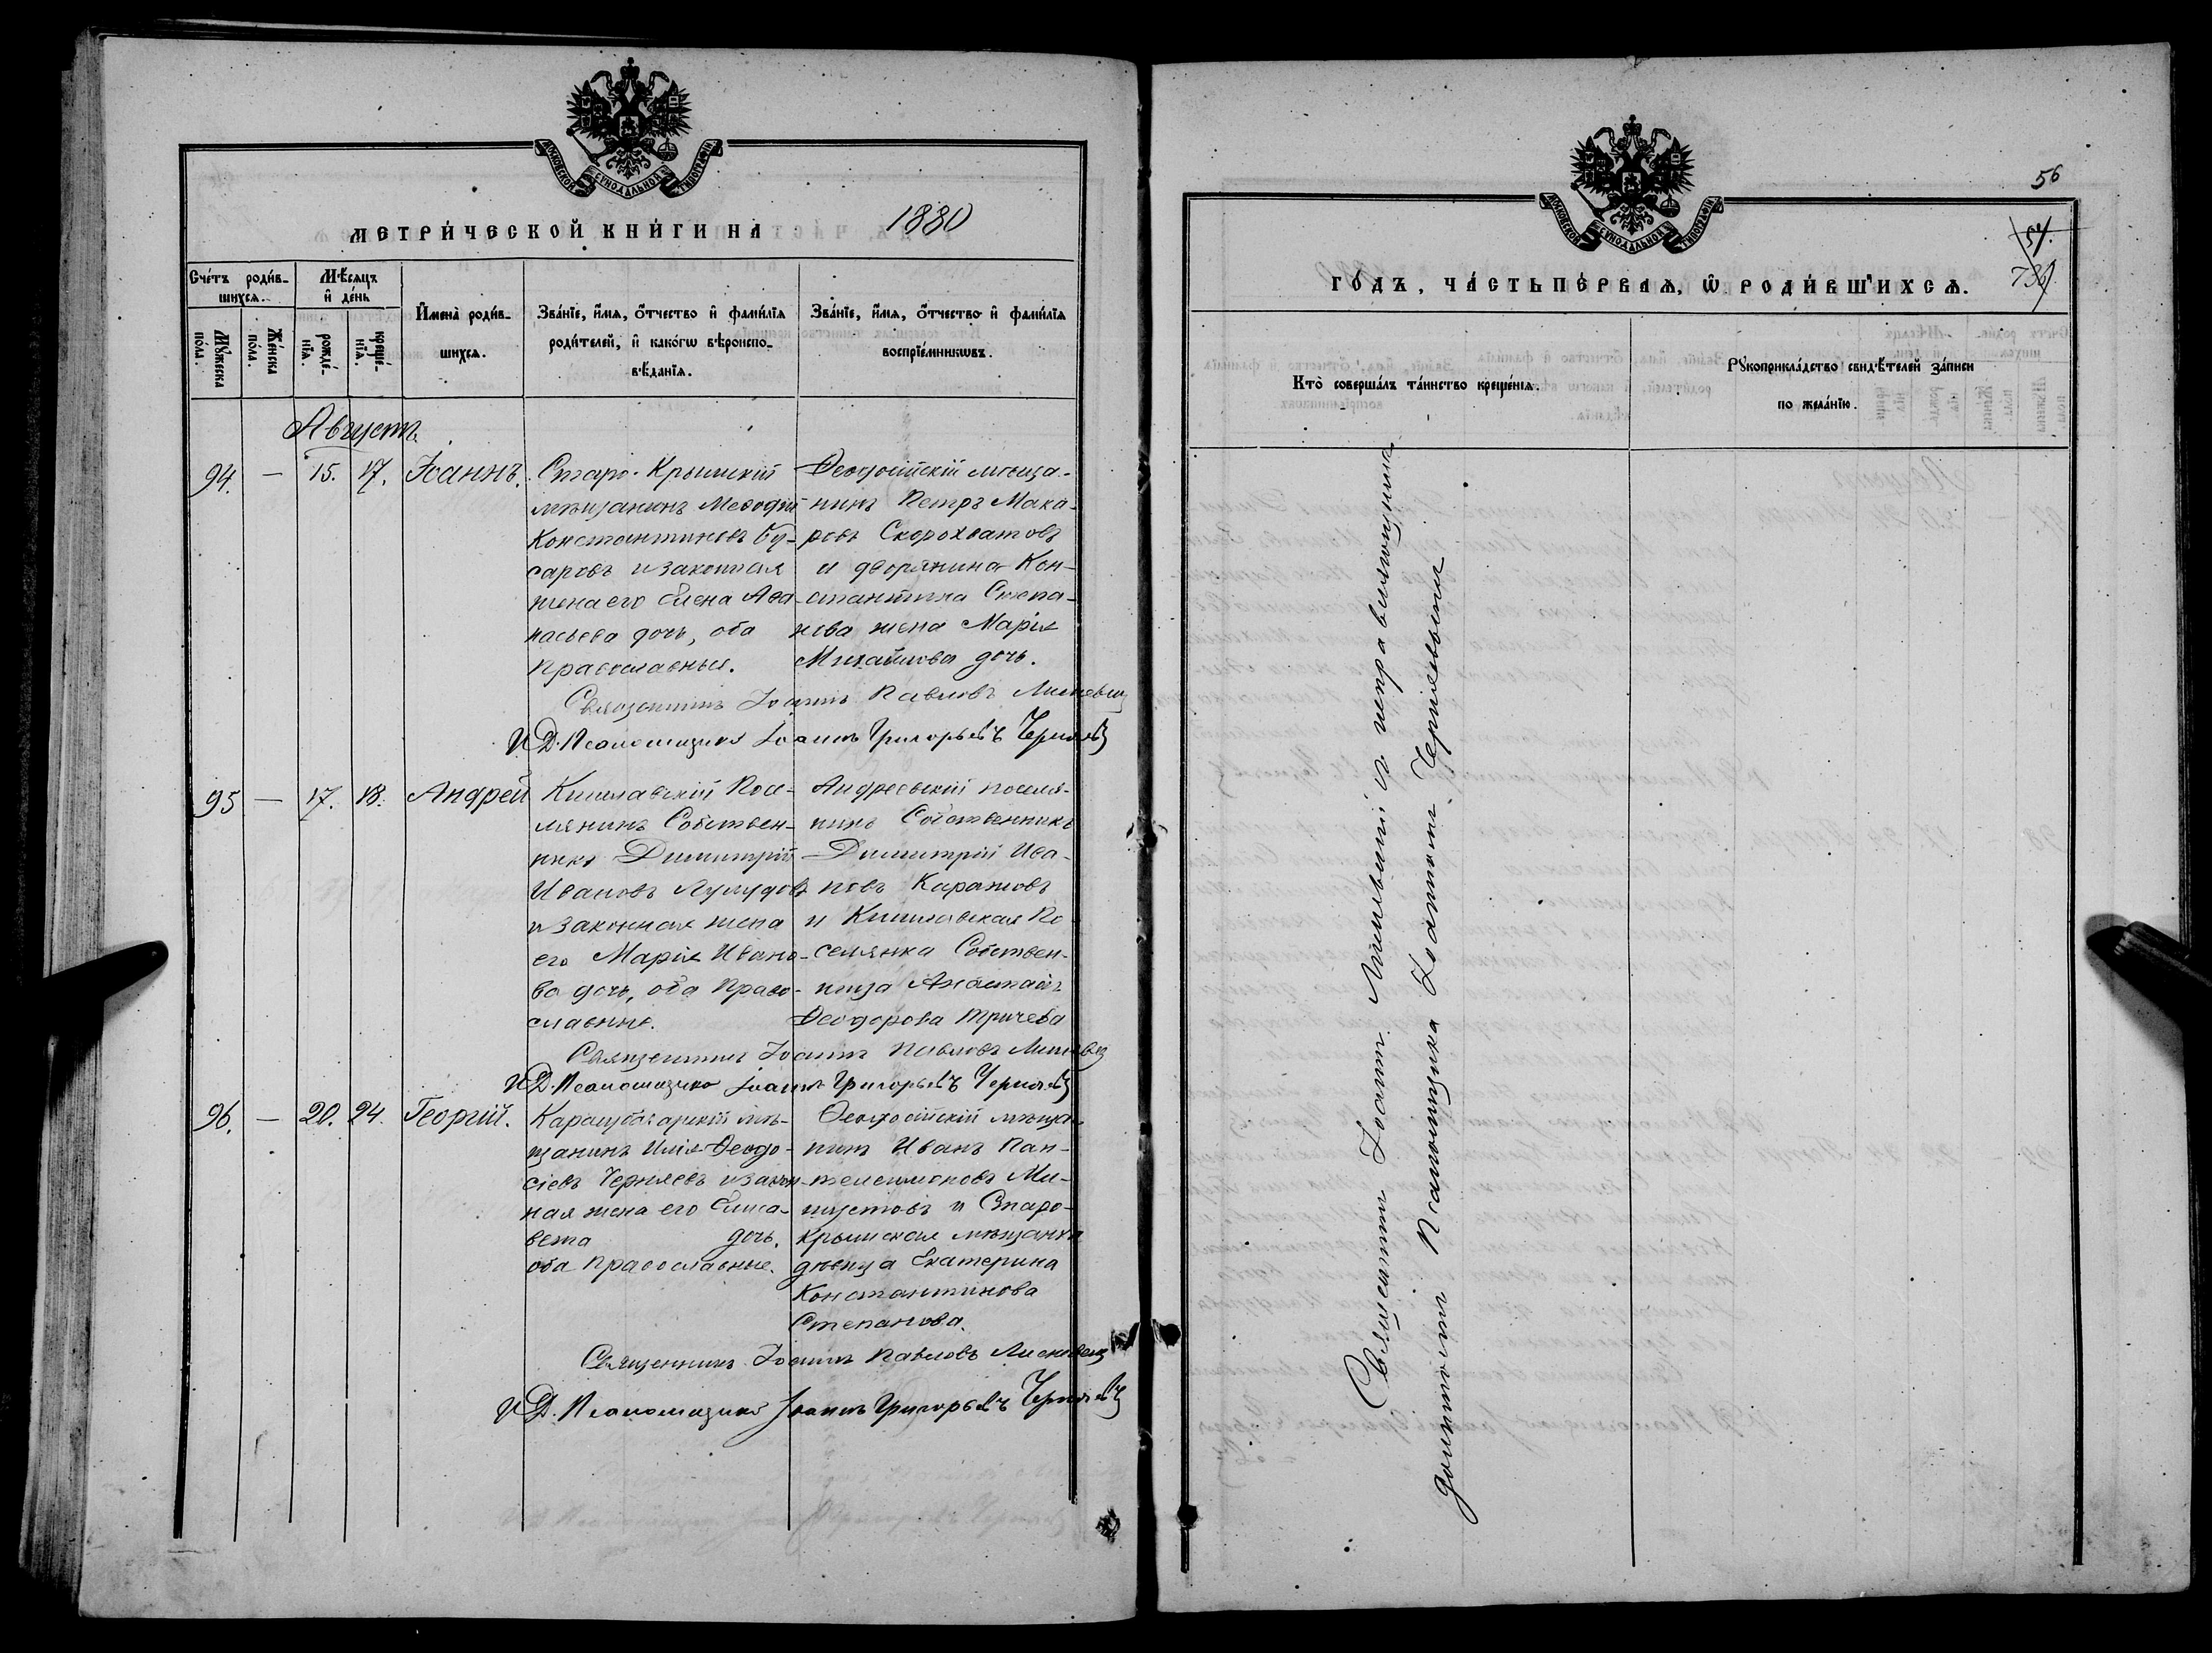 МОСКОВСКОЙ СУНОДАЛЬНОЙ ТИПОГРАФІИ
МЕТРИ́ЧЕСКОЙ КНИ́ГИ НА 1880
Сче́тъ роди́в-
шихсѧ.
Мѣ́сѧцъ
и҆ де́нь
Мꙋ́жеска
по́ла.
Же́нска
по́ла.
рожде́-
нїѧ.
креще́-
нїѧ.
И҆мена̀ роди́в-
шихсѧ.
Зва́нїе, и҆́мѧ, ѻ҆́тчество и҆ фами́лїѧ
роди́телей, и҆ како́гѡ вѣроиспо-
вѣ́данїѧ.
Зва́нїе, и҆́мѧ, ѻ҆́тчество и҆ фами́лїѧ
воспрїе́мникѡвъ.
Августъ
94. — 15. 17. Іоаннъ.
Старо-Крымскій
мѣщанинъ Меѳодій
Константиновъ Бу-
саровъ и законная
жена его Елена Аѳа-
насьева дочь, оба
Православные.
Ѳеодосійскій мѣща-
нинъ Петръ Мака-
ровъ Скорохватовъ
и дворянина Кон-
стантина Степа-
нова жена Марія
Михайлова дочь.
Священникъ Іоаннъ Павловъ
И.Д. Псаломщика Іоаннъ Григорьевъ Черняевъ
95 — 17. 18. Андрей
Кишлавскій Посе-
лянинъ Собствен-
никъ Димитрій
Ивановъ Лулудовъ
и законная жена
его Марія Ивано-
ва дочь, оба Право-
славные.
Андреевскій поселя-
нинъ Собственникъ
Димитрій Ива-
новъ Каражовъ
и Кишлавская По-
селянка Собствен-
ница Анастасія
Ѳеодорова Тричева
Священникъ Іоаннъ Павловъ
И.Д. Псаломщика Іоаннъ Григорьевъ Черняевъ
96. — 20. 24. Георгій.
Карасубазарскій мѣ-
щанинъ Илія Ѳеодо-
сіевъ Черняевъ и закон-
ная жена его Елиса-
вета дочь.
оба Православные.
Ѳеодосійскій мѣща-
нинъ Иванъ Пан-
телеимоновъ Ми-
и Старо-
крымская мѣщанка
дѣвица Екатерина
Константинова
Степанова.
Священникъ Іоаннъ Павловъ
И.Д. Псаломщика Іоаннъ Григорьевъ Черняевъ
56
54.
МОСКОВСКОЙ СУНОДАЛЬНОЙ ТИПОГРАФІИ
ГО́ДЪ, ЧА́СТЬ ПЕ́РВАѦ, Ѽ РОДИ́ВШИХСѦ.
Кто̀ соверша́лъ та́инство креще́нїѧ.
Рꙋкоприкла́дство свидѣ́телей за́писи
по жела́нїю.
Священникъ Іоаннъ съ исправляющимъ
должность Псаломщика Іоанномъ Черняевымъ